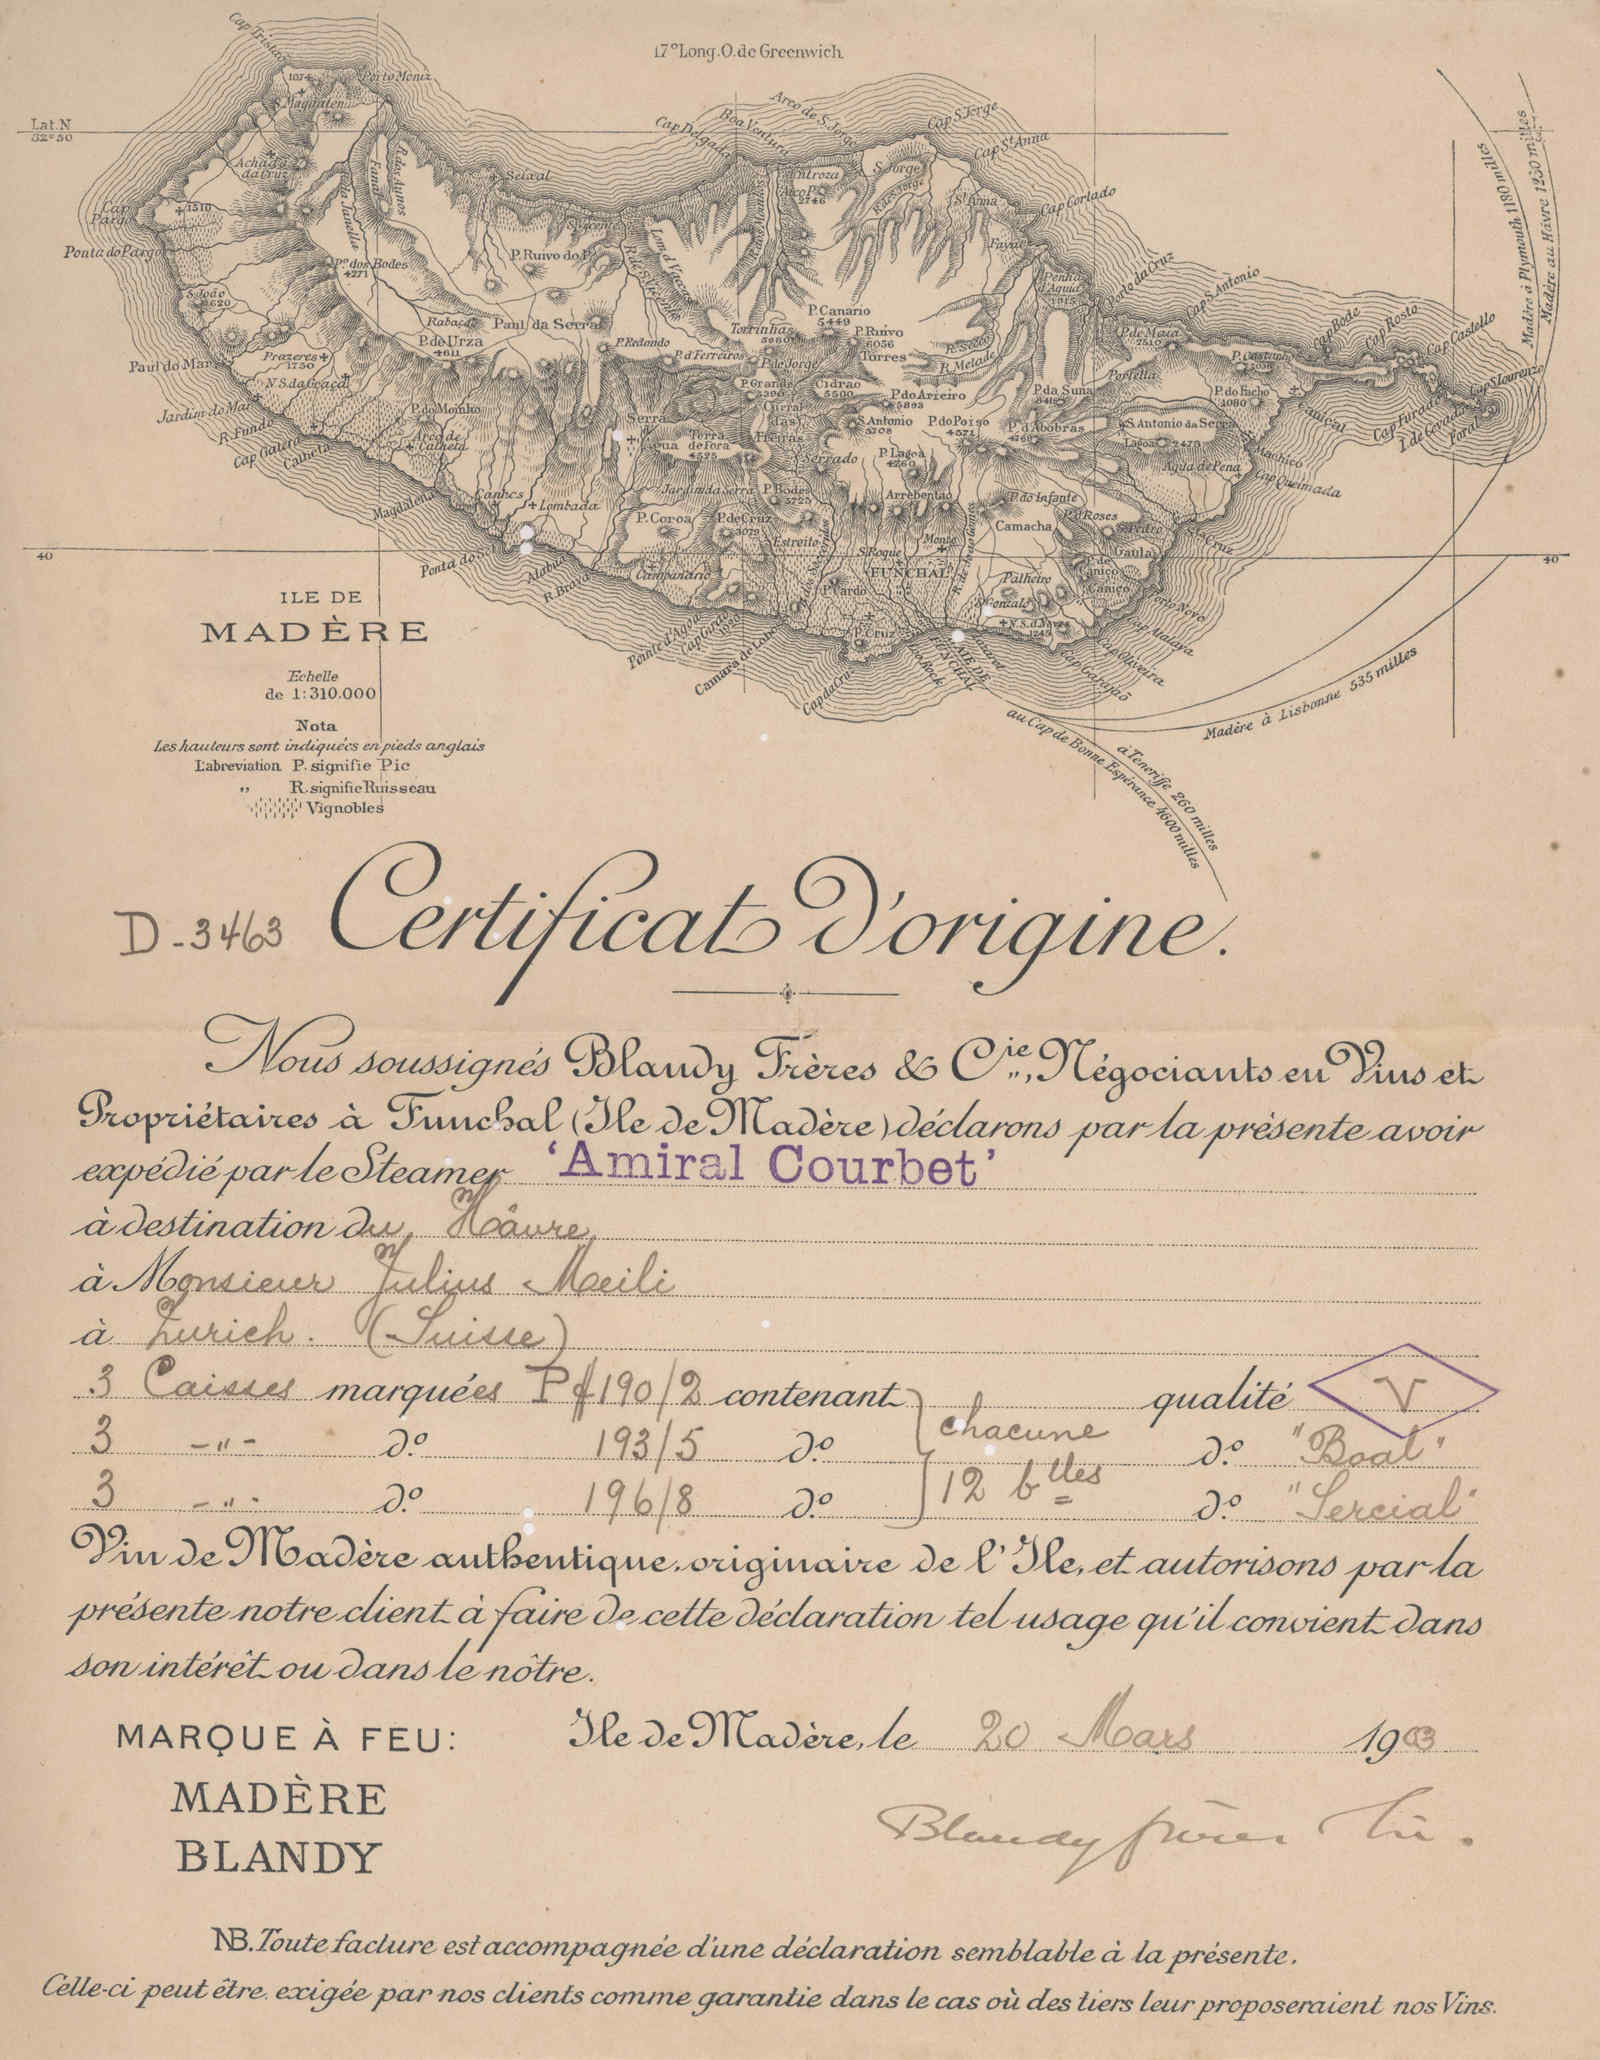 17° Long. O. de Greenwich
Lat. N
32°50
Cap Tristao
1074
Porto Moniz
S. Magdalena
Achada
da Cruz
Seixal
Cap Delgado
Boa Ventura
Arco de S. Jorge
Cap S. Jorge
Cap St Anna
Cap Cortado
S. Jorge
St Anna
Fayal
Entroza
Arco P.
2746
Cap
Pargo
1510
Ponta do Pargo
Po. dos Bodes
4271
P. Ruivo do P.
S. João
Rabaçal
Paul da Serra
P. de Urza
4611
P. Redondo
Torrinhas
P. Canario
5449
P. Ruivo
6056
Torres
R. Secco
R. Metade
Penha
d'Aguia
1915
Porto da Cruz
Cap S. Antonio
Cap Bode
Cap Rosto
Cap Castello
Cap S. Lourenzo
P. de Maza
2510
P. Castanho
Portella
P. do Facho
Paul do Mar
Prazeres
1750
N.S. da Graça
P. d Ferreiros
P. de Jorge
P. Grande
Cidrao
5500
P. do Arreiro
5893
P. da Suna
Jardim do Mar
R. Fundo
Cap Galeta
Calheta
P. do Moinho
Arco de
Calheta
Serra
Agua
Terra
de Fora
4525
Curral
das
Freiras
S. Antonio
5706
P. do Poiso
4571
P. d'Abobras
S. Antonio da Serra
Lagoa 2475
Agua de Pena
Caniçal
Machico
Cap Queimada
Cap Furado
Serrado
P. Lagoa
4260
Arrebentão
P. do Infante
P. d Roses
Camacha
Magdalena
Canhas
Lombada
P. Coroa
Jardim da Serra
P. Bodes
3725
P. de Cruz
Estreito
S. Roque
Monte
FUNCHAL
Palheiro
S. Gonzalo
Gaula
P. de
Caniço
Caniço
Porto Novo
Cap Oliveira
Cap Garajaõ
40
40
Ponta do
R. Brava
Campanario
Camara de Lobos
Cap da Cruz
P. Cardo
P. Cruz
Madère à Plymouth 1180 milles
Madère au Hâvre 1230 milles
Madère à Lisbonne 535 milles
au Cap de Bonne Espérance 4600 milles
à Teneriffe 260 milles
ILE DE
MADÈRE
Echelle
de 1:310.000
Nota
Les hauteurs sont indiquées en pieds anglais
L'abreviation P. signifie Pic
" R. signifie Ruisseau
Vignobles
D - 3463 Certificat d'origine.
Nous soussignés Blandy Frères & Cie., Négociants en Vins et
Propriétaires à Funchal (Ile de Madère) déclarons par la présente avoir
expédié par le Steamer 'Amiral Courbet'
à destination du Hâvre
à Monsieur Julius Meili
à Zurich. (Suisse)
3 Caisses marquées P # 190/2 contenant qualité V
3 -"- do. 193/5 do. chacune do. "Boal"
3 -"- do. 196/8 do. 12 blles do. "Sercial"
Vin de Madère authentique, originaire de l'Ile, et autorisons par la
présente notre client à faire de cette déclaration tel usage qu'il convient dans
son intérêt ou dans le nôtre.
MARQUE À FEU: Ile de Madère, le 20 Mars 1903
MADÈRE
BLANDY
Blandy frères Cie.
NB. Toute facture est accompagnée d'une déclaration semblable à la présente.
Celle-ci peut être exigée par nos clients comme garantie dans le cas où des tiers leur proposeraient nos Vins.